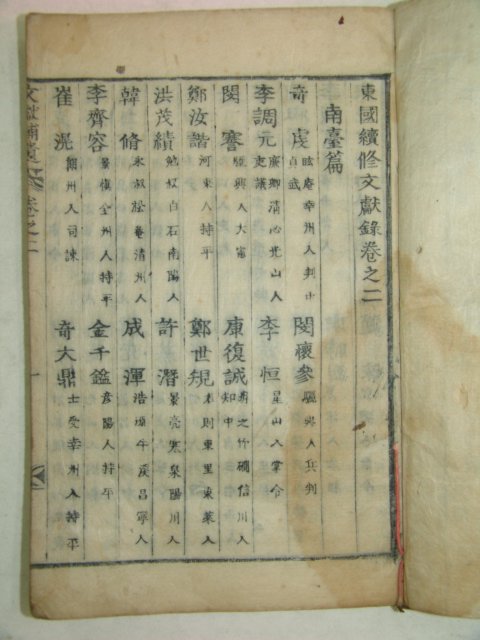 東國續修文獻錄卷之二
南臺篇
奇虔 眩庵幸州人判中
貞武
閔懷參 驪興人兵判
李調元 廣卿清心光山人
吏議
李恒 星山人掌令
閔謇 驪興人大憲
康復誠 之竹磵信川人
知中
鄭汝諧 河東人持平
鄭世規 君則東里東萊人
洪茂績 勉叔白石南陽人
許潛 景亮寒泉陽川人
韓脩 永叔 清州人
成渾 浩原牛溪昌寧人
李齊容 景 全州人持平
金千鎰 彦陽人持平
崔滉 海州人司諫
奇大鼎 士受幸州人持平
文獻補遺 卷之二